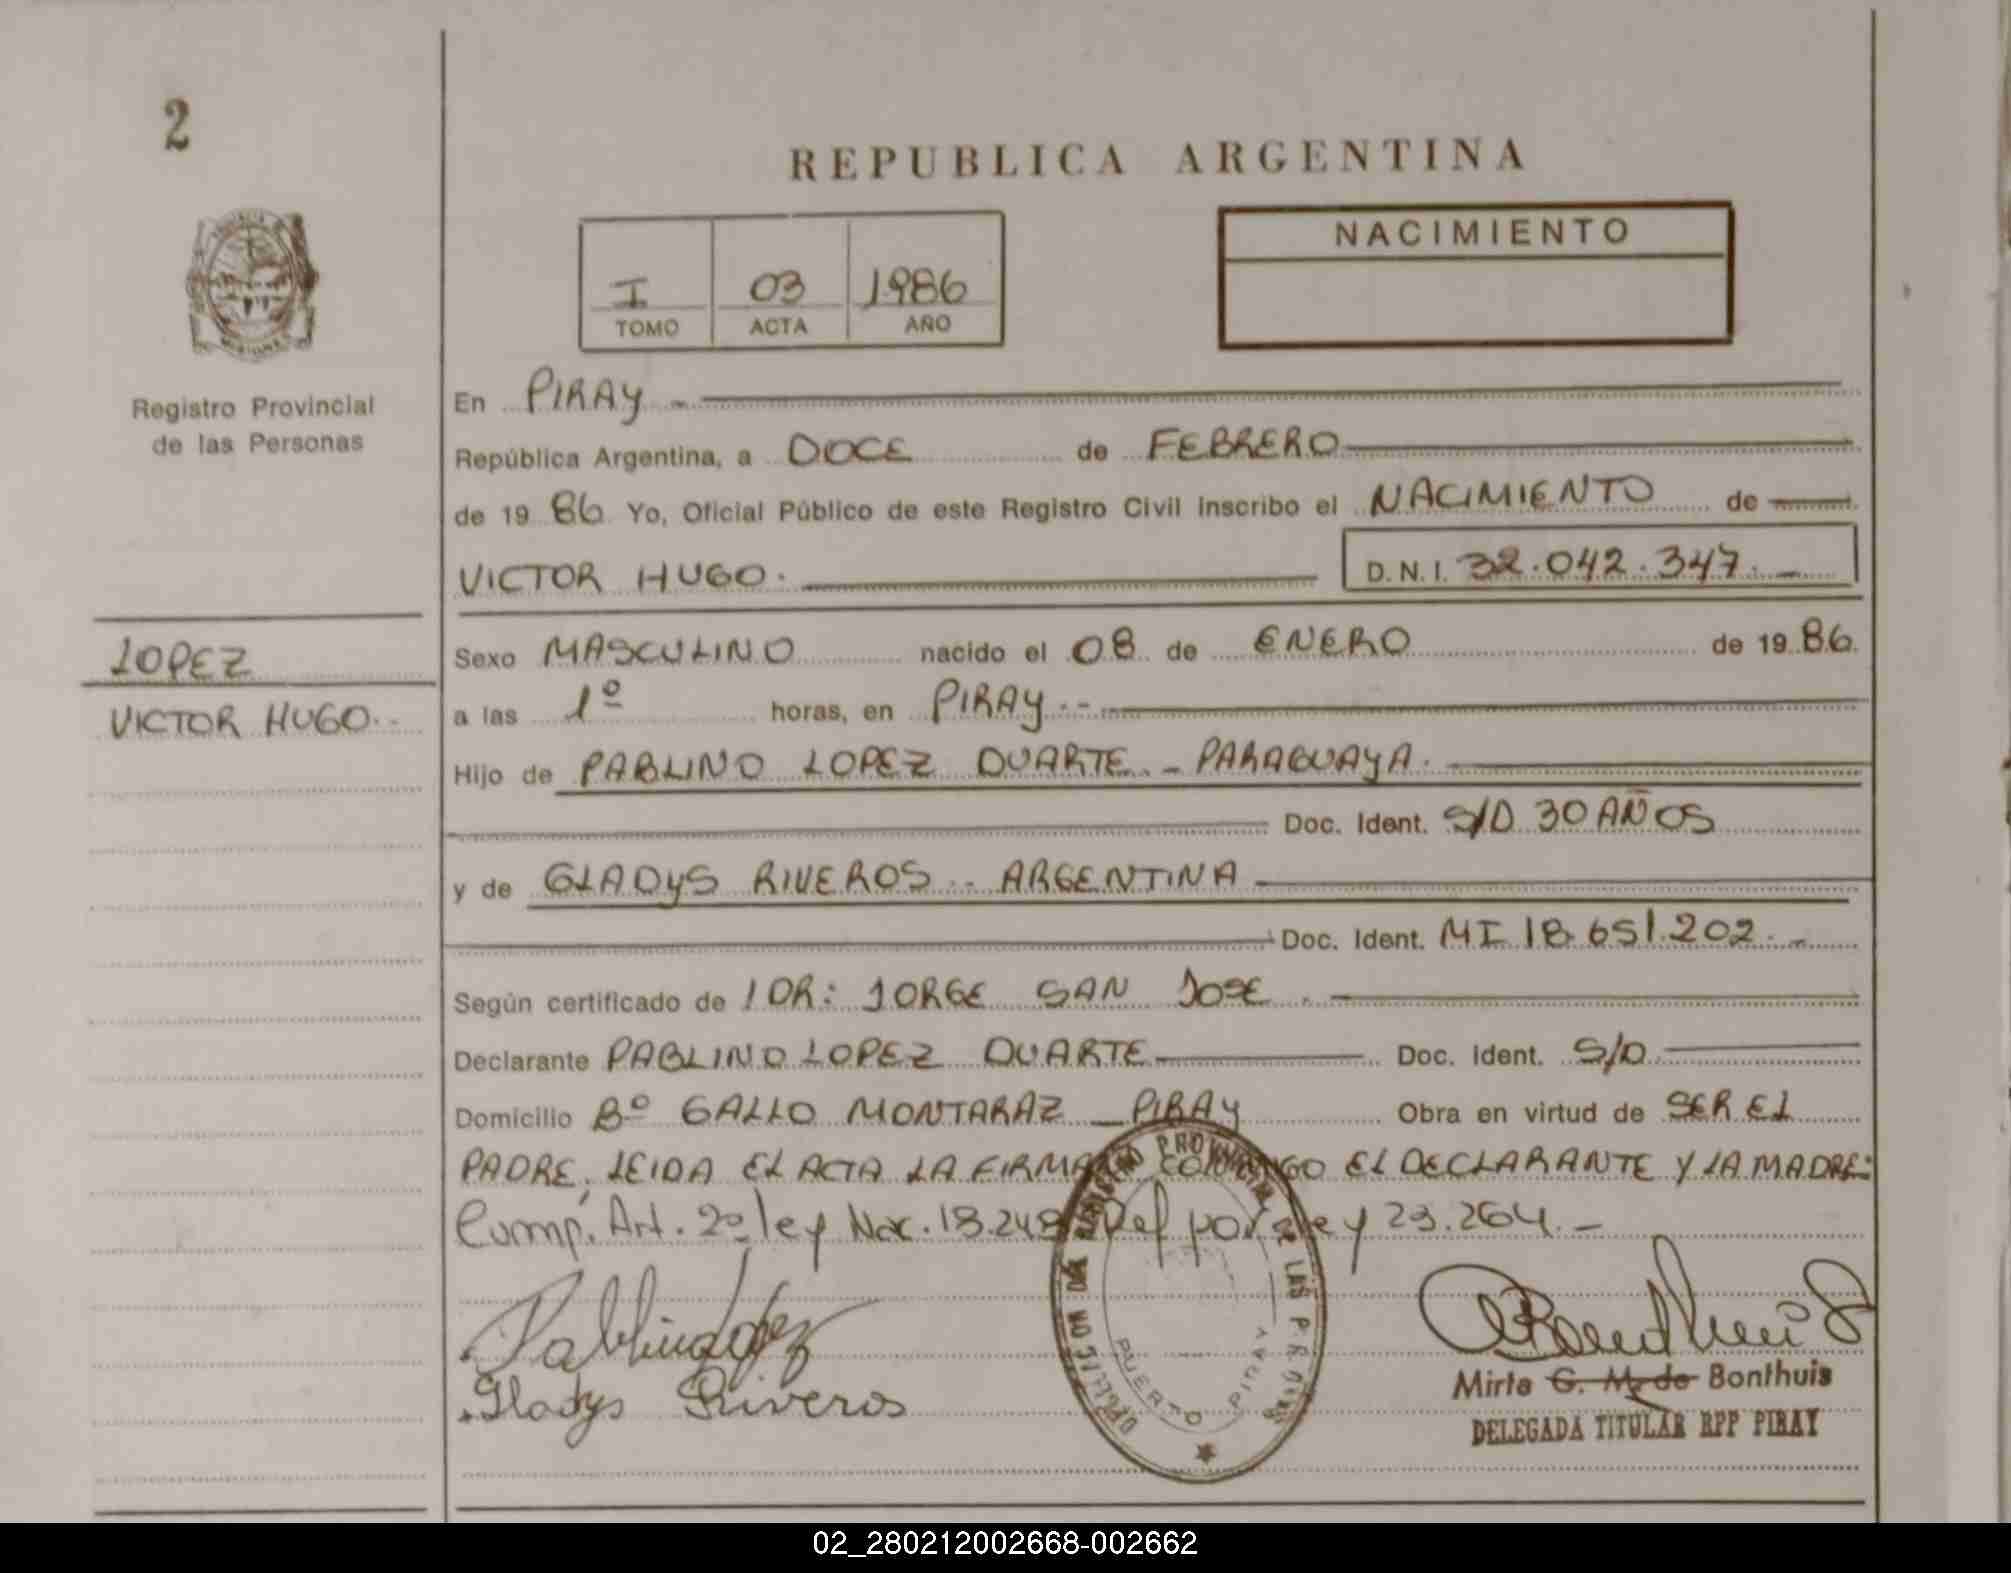 2
REPUBLICA ARGENTINA
NACIMIENTO
I 03 1986
TOMO ACTA AÑO
Registro Provincial
de las Personas
LOPEZ
VICTOR HUGO.-
En PIRAY -
República Argentina, a DOCE de FEBRERO
de 19 86 Yo, Oficial Público de este Registro Civil inscribo el NACIMIENTO de
VICTOR HUGO. D.N.I. 32.042.347.-
Sexo MASCULINO nacido el 08 de ENERO de 19 86.
a las 1º horas, en PIRAY.-
Hijo de PABLINO LOPEZ DUARTE.- PARAGUAYA.
Doc. Ident. S/D 30 AÑOS
y de GLADYS RIVEROS.- ARGENTINA
Doc. Ident. MI 18.651.202.-
Según certificado de DR: JORGE SAN JOSE.
Declarante PABLINO LOPEZ DUARTE Doc. Ident. S/D
Domicilio Bº GALLO MONTARAZ - PIRAY Obra en virtud de SER EL
PADRE, LEIDA EL ACTA LA FIRMAN CONMIGO EL DECLARANTE Y LA MADRE:
Cump. Art. 2º ley Nac. 18.248 Def por ley 23.264.-
Pablino Lopez
Gladys Riveros
DELEGACION DEL REGISTRO PROVINCIAL DE LAS PERSONAS
PUERTO PIRAY
Mirta G. M. de Bonthuis
DELEGADA TITULAR RPP PIRAY
02_280212002668-002662